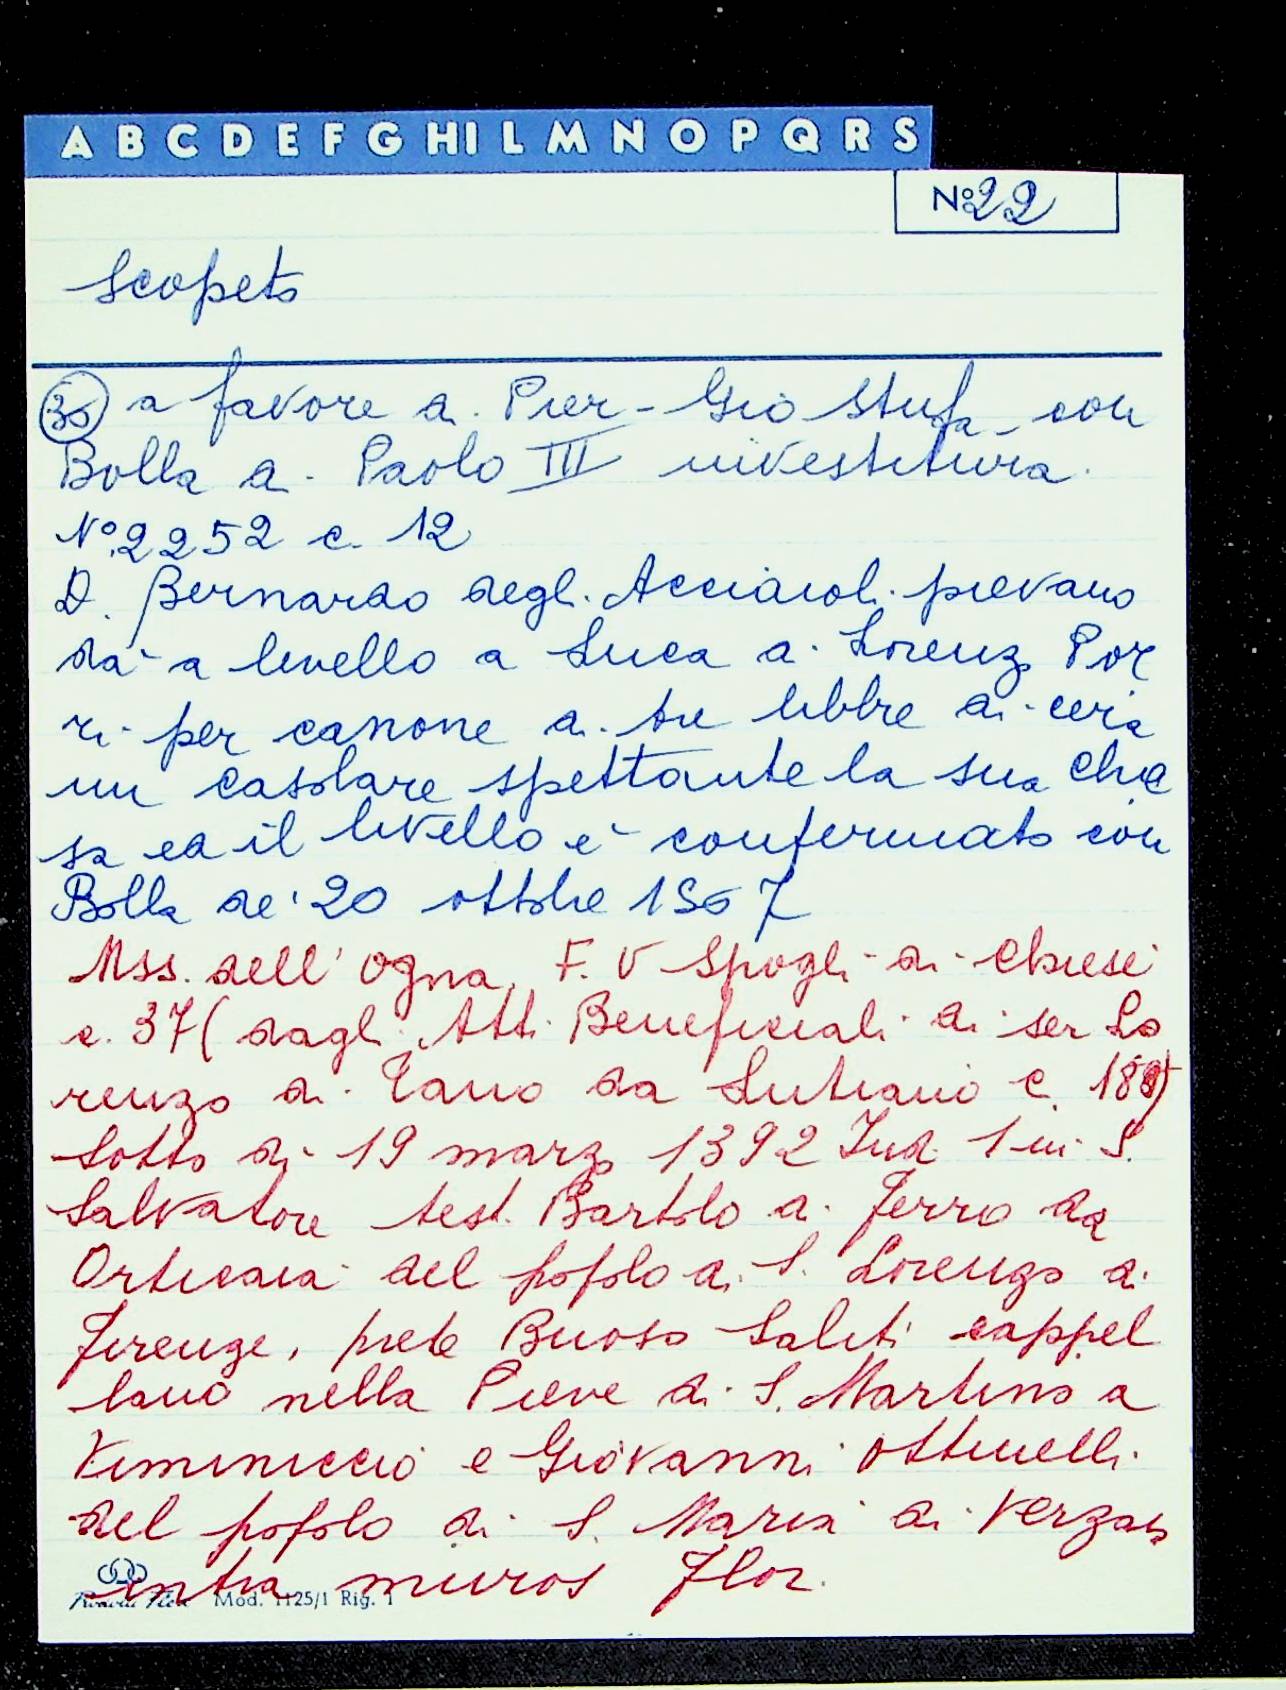 A B C D E F G HI L M N O P Q R S
No 22
Scopeto
30 a favore di Pier-Gio Stufa con
Bolla di Paolo III investitura.
No. 2252 c. 12
D. Bernardo degli Acciaioli pievano
dà a livello a Luca di Lorenzo Por
ri per canone di tre libbre di cera
un casolare spettante la sua chie
sa ed il livello è confermato con
Bolla de' 20 ottobre 1567
Mss. dell' Ogna F. V Spogli di Chiese
c. 37 (dagli Atti Beneficiali di ser Lo
renzo di Tano da Lutiano c.
Sotto di 19 marzo 1392 Ind. 1 in S.
Salvatore test. Bartolo di Ferro da
Orticaia del popolo di S. Lorenzo di
Firenze, prete Buoso Saliti cappel
lano nella Pieve di S. Martino a
Viminiccio e Giovanni Ottinelli
del popolo di S. Maria di Verzaia
intra muros Flor.
Mod. 1125/1 Rig. 1